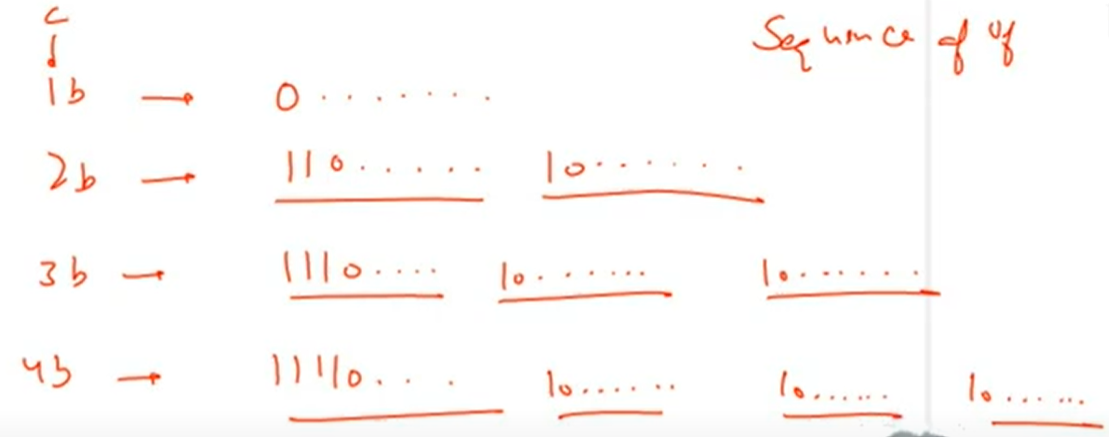 c
↓
1b → 0.......
Sequence of
2b → 110..... 10......
3b → 1110.... 10...... 10......
4b → 11110... 10...... 10...... 10......